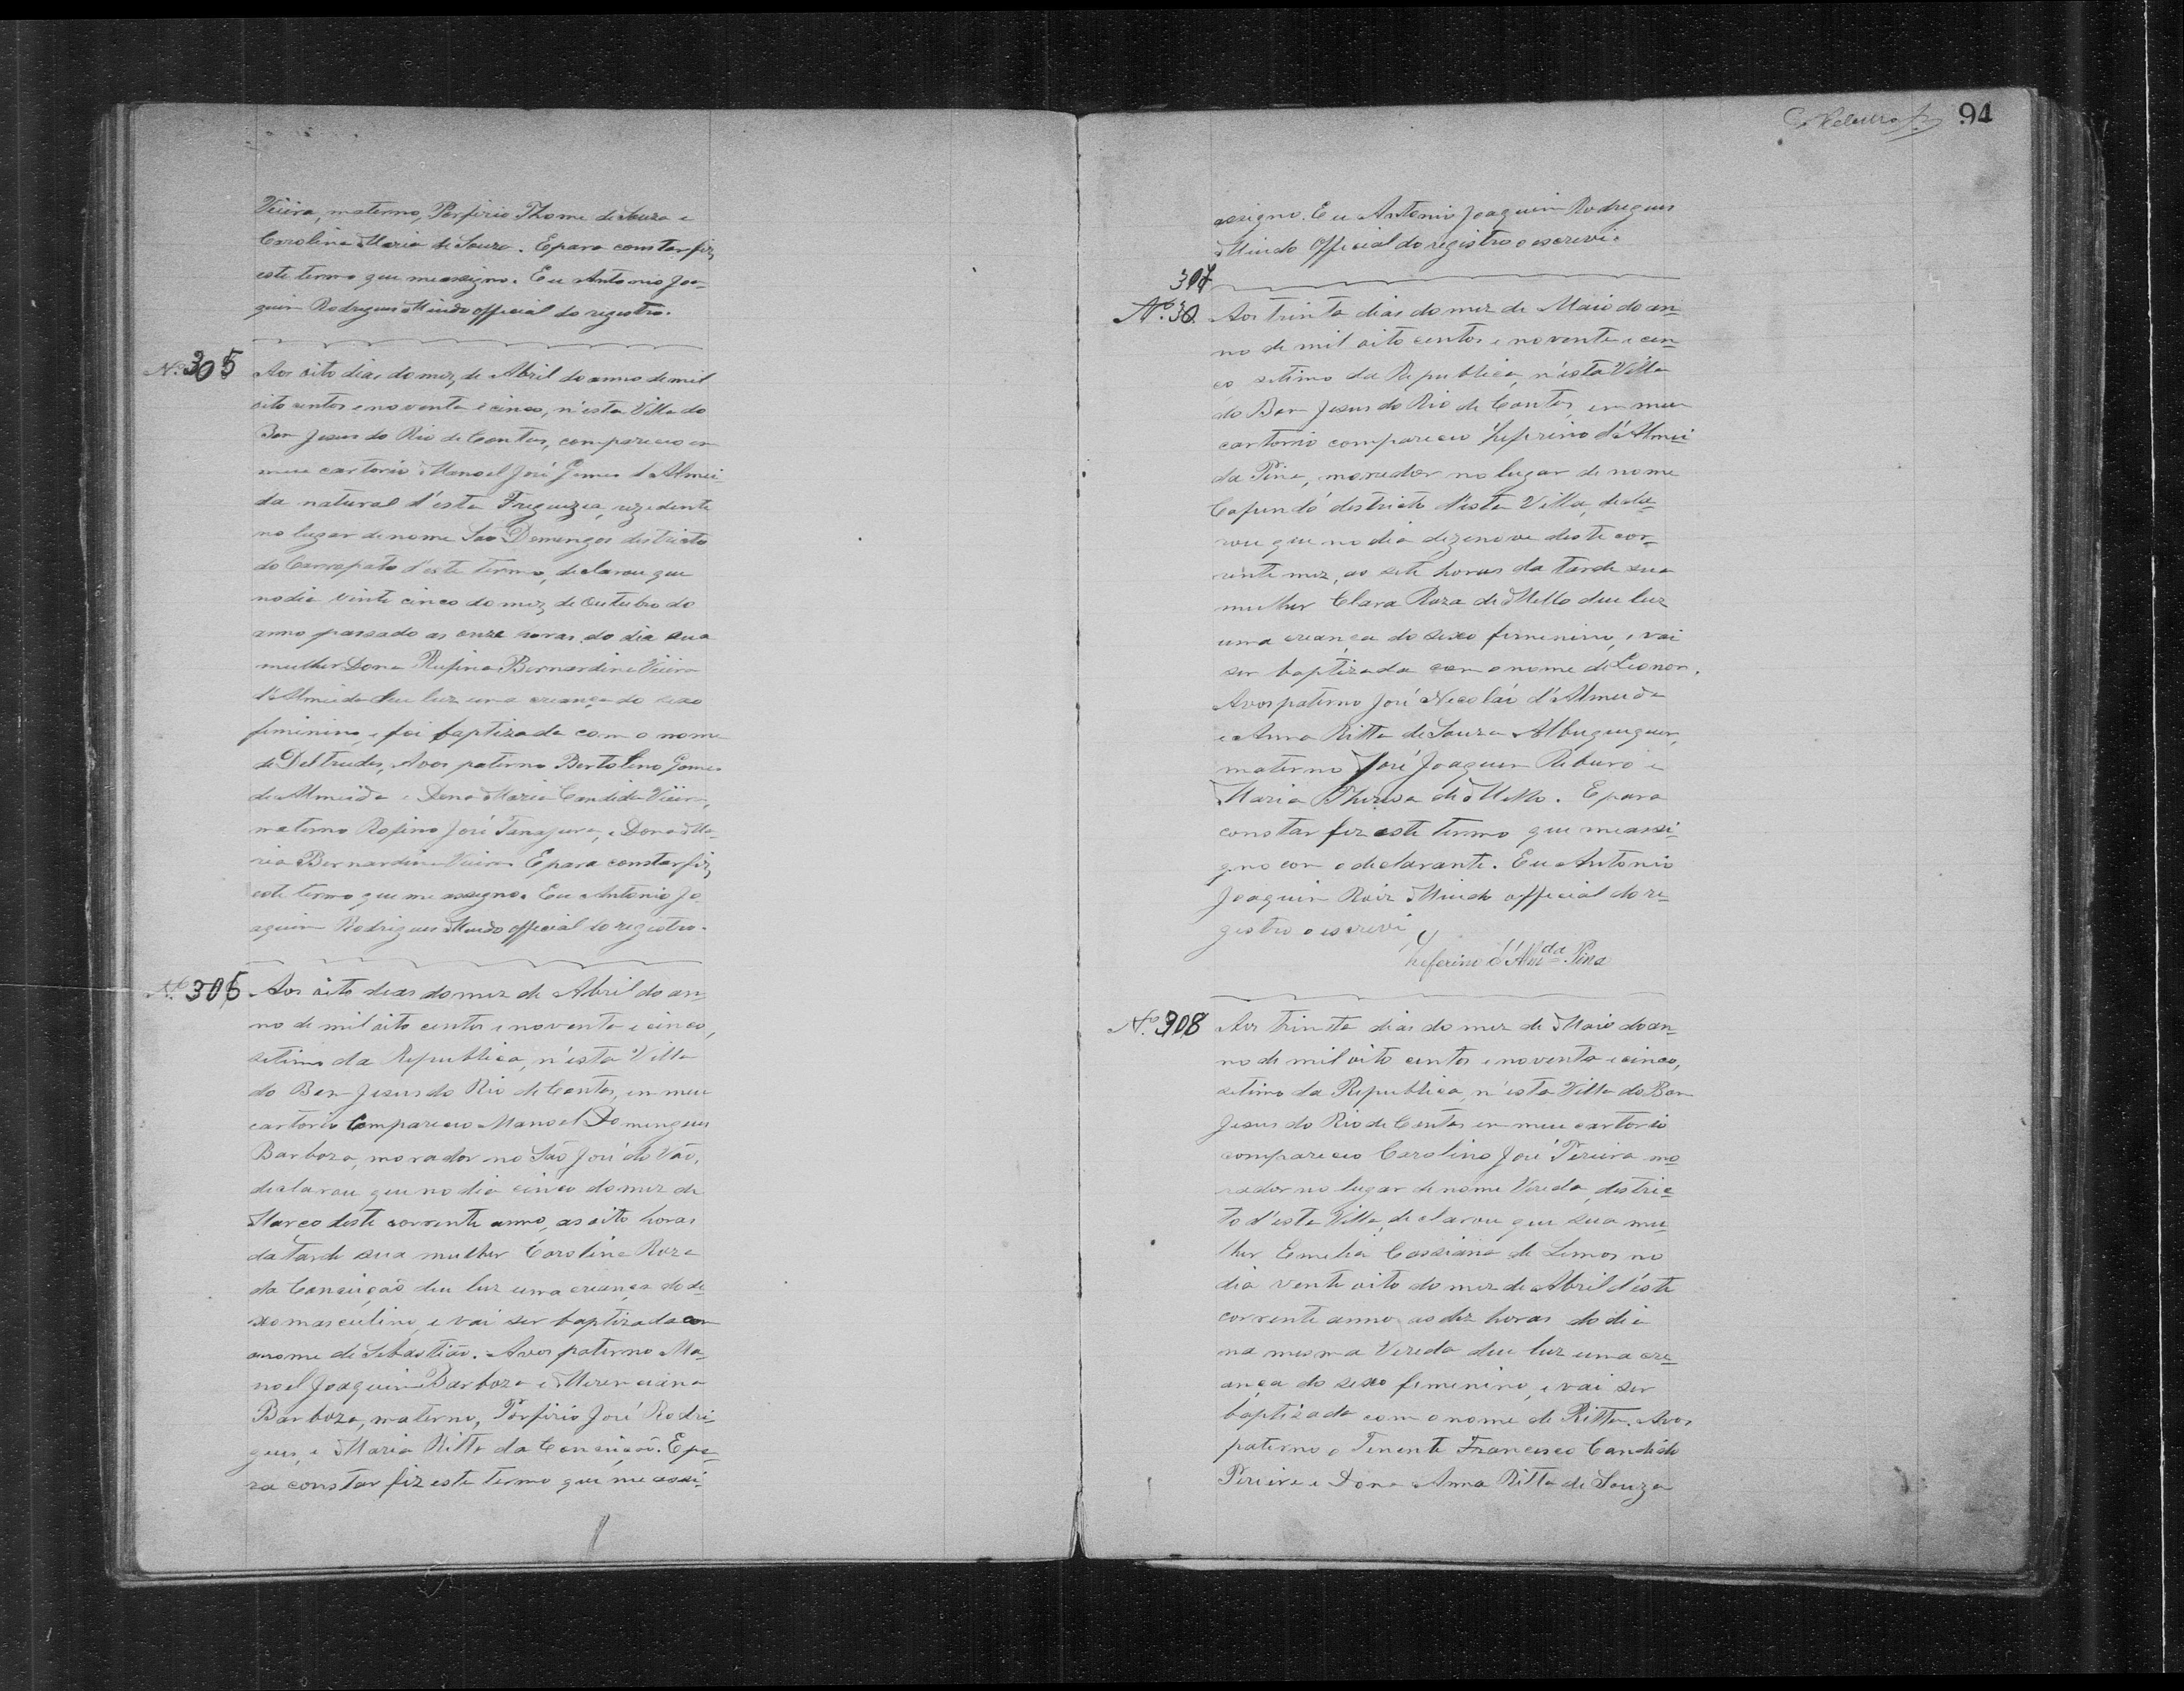 Vieira, materno, Porfirio Thome de Souza e
Carolina Maria de Souza. E para constar fiz
este termo que me assigno. Eu Antonio Joa-
quim Rodrigues Mindo official do registro.
Nº 305
Aos oito dias do mez de Abril do anno de mil
oito centos e noventa e cinco, n'esta Villa do
Bom Jesus do Rio de Contas, compareceo em
meu cartorio Manoel José Gomes d'Almei
da natural d'esta Freguezia, rezedente
no lugar de nome São Domingos districto
do Carrapato d'este termo, declarou que
no dia vinte cinco do mez de Outubro do
anno passado as onze horas do dia sua
mulher Dona Rufina Bernardina Vieira
d'Almeida deu luz uma creança do sexo
feminino, e foi baptizada com o nome
de Deltrudes, Avos paterno Bertolino Gomes
de Almeida e Dona Maria Candida Vieira,
materno Rofino José Tanajura, e Dona Ma-
ria Bernardina Vieira E para constar fiz
este termo que me assigno. Eu Antonio Jo
aquim Rodrigues Mindo official do registro.
Nº 306
Aos oito dias do mez de Abril do an-
no de mil oito centos e noventa e cinco,
setimo da Republica, n'esta Villa
do Bom Jesus do Rio de Contas, em meu
cartorio Compareceo Manoel Domingues
Barboza, morador no São José do Vão,
declarou que no dia cinco do mez de
Março deste corrente anno, as oito horas
da tarde sua mulher Carolina Roza
da Conceição deu luz uma creança do se
xo masculino, e vai ser baptizada com
o nome de Sebastião. Avos paterno Ma-
noel Joaquim Barboza e Merenciana
Barboza, materno, Porfirio José Rodri-
gues, e Maria Ritta da Conceição. E pa-
ra constar fiz este termo que me assi-
94
assigno. Eu Antonio Joaquim Rodrigues
Mindo Official do registro o escrevi.
307
Nº 30
Aos trinta dias do mez de Maio do an
no de mil oito centos e noventa e cin
co setimo da Republica, n'esta Villa
do Bom Jesus do Rio de Contas, em meu
cartorio compareceu Zeferino d'Almei
da Pina, morador no lugar de nome
Cafundó districto d'esta Villa, decla
rou que no dia dezenove deste cor-
rente mez, as sete horas da tarde sua
mulher Clara Roza de Mello deu luz
uma creança do sexo femenino, e vai
ser baptizada com o nome de Leonor.
Avos paterno José Nicoláo d'Almeida
e Anna Ritta de Souza Albuquerque,
materno José Joaquim Ribeiro e
Maria Thereza de Mello. E para
constar fiz este termo que me assi-
gno com o declarante. Eu Antonio
Joaquim Roiz Mindo official do re-
gistro o escrevi
Zeferino d'Almda Pina
Nº 308
Aos trinta dias do mez de Maio do an-
no de mil oito centos e noventa e cinco,
setimo da Republica, n'esta Villa do Bom
Jesus do Rio de Contas em meu cartorio
compareceo Carolino José Pereira mo
rador no lugar de nome Vereda, distric
to d'esta Villa, declarou que sua mu
lher Emelia Cassiana de Lemos no
dia vente oito do mez de Abril d'este
corrente anno as dez horas do dia
na mesma Vereda deu luz uma cre-
ança do sexo femenino, e vai ser
baptizada com o nome de Ritta. Avos
paterno o Tenente Francisco Candido
Pereira e Dona Anna Ritta de Souza